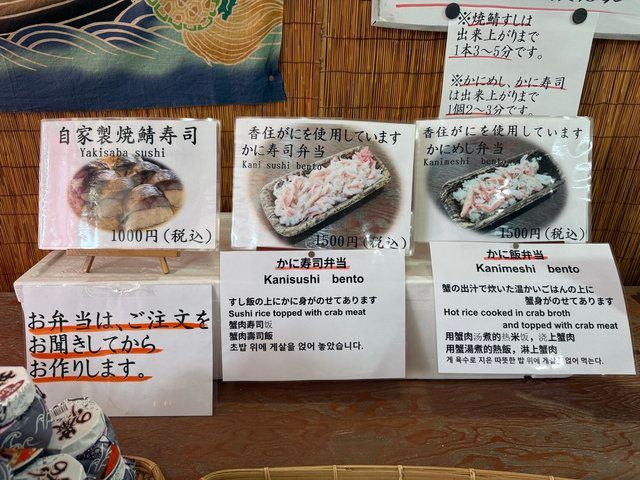 ※焼鯖すしは
出来上がりまで
1本3～5分です。
※かにめし、かに寿司
は出来上がりまで
1個2～3分です。
自家製焼鯖寿司
Yakisaba sushi
1000円(税込)
香住がにを使用しています
かに寿司弁当
Kani sushi bento
1500円(税込)
香住がにを使用しています
かにめし弁当
Kanimeshi bento
1500円(税込)
お弁当は、ご注文を
お聞きしてから
お作りします。
かに寿司弁当
Kanisushi bento
すし飯の上にかに身がのせてあります
Sushi rice topped with crab meat
蟹肉寿司饭
蟹肉壽司飯
초밥 위에 게살을 얹어 놓았습니다.
かに飯弁当
Kanimeshi bento
蟹の出汁で炊いた温かいごはんの上に
蟹身がのせてあります
Hot rice cooked in crab broth
and topped with crab meat
用蟹肉汤煮的热米饭，浇上蟹肉
用蟹湯煮的熱飯，淋上蟹肉
게 육수로 지은 따뜻한 밥 위에 게살을 얹어 먹는다.